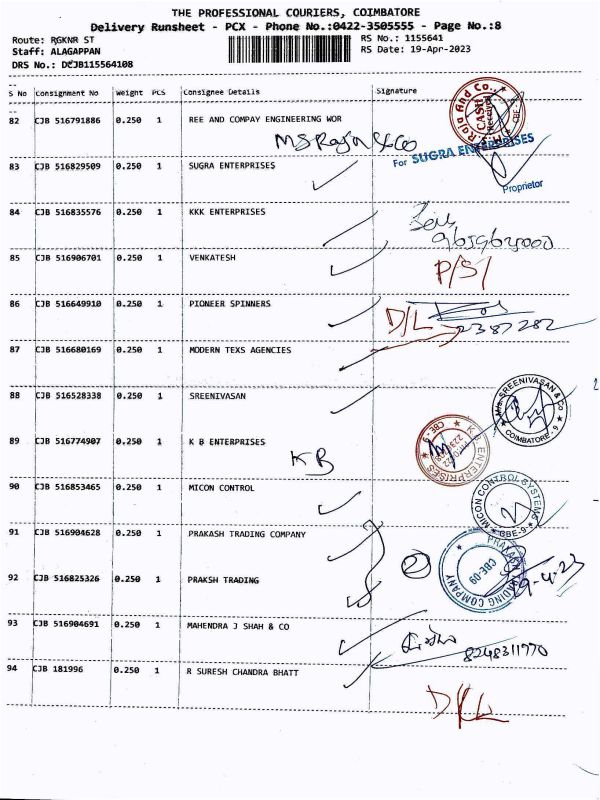 THE PROFESSIONAL COURIERS, COIMBATORE
Delivery Runsheet - PCX - Phone No.:0422-3505555 - Page No.:8
Route: RGKNR ST
RS No.: 1155641
Staff: ALAGAPPAN
RS Date: 19-Apr-2023
DRS No.: DCJB115564108
S No Consignment No Weight PCS Consignee Details Signature
82 CJB 516791886 0.250 1 REE AND COMPAY ENGINEERING WOR
Raja And Co., CBE CASH Received
83 CJB 516829509 0.250 1 SUGRA ENTERPRISES
For SUGRA ENTERPRISES
Proprietor
84 CJB 516835576 0.250 1 KKK ENTERPRISES
85 CJB 516906701 0.250 1 VENKATESH
P/S/
86 CJB 516649910 0.250 1 PIONEER SPINNERS
D/L 2387282
87 CJB 516680169 0.250 1 MODERN TEXS AGENCIES
88 CJB 516528338 0.250 1 SREENIVASAN
M/s. SREENIVASAN & Co COIMBATORE-9
89 CJB 516774907 0.250 1 K B ENTERPRISES
KB
K.B. ENTERPRISES CBE-9
90 CJB 516853465 0.250 1 MICON CONTROL
MICON CONTROL SYSTEMS CBE-9
91 CJB 516904628 0.250 1 PRAKASH TRADING COMPANY
2
PRAKASH TRADING COMPANY CBE-09
92 CJB 516825326 0.250 1 PRAKSH TRADING
93 CJB 516904691 0.250 1 MAHENDRA J SHAH & CO
8248311770
94 CJB 181996 0.250 1 R SURESH CHANDRA BHATT